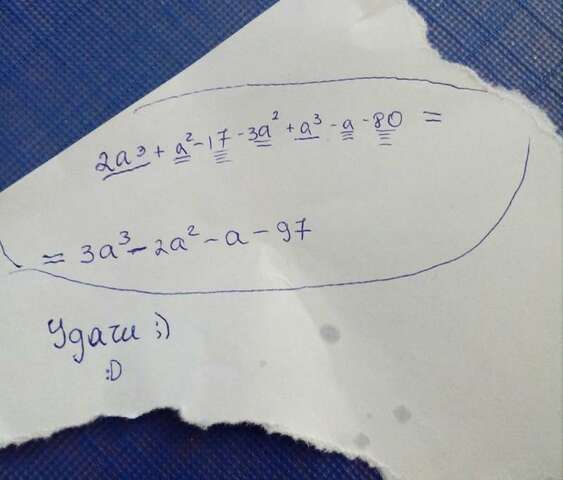 2a³ + a² - 17 - 3a² + a³ - a - 80 =
= 3a³ - 2a² - a - 97
Удачи ;)
:D